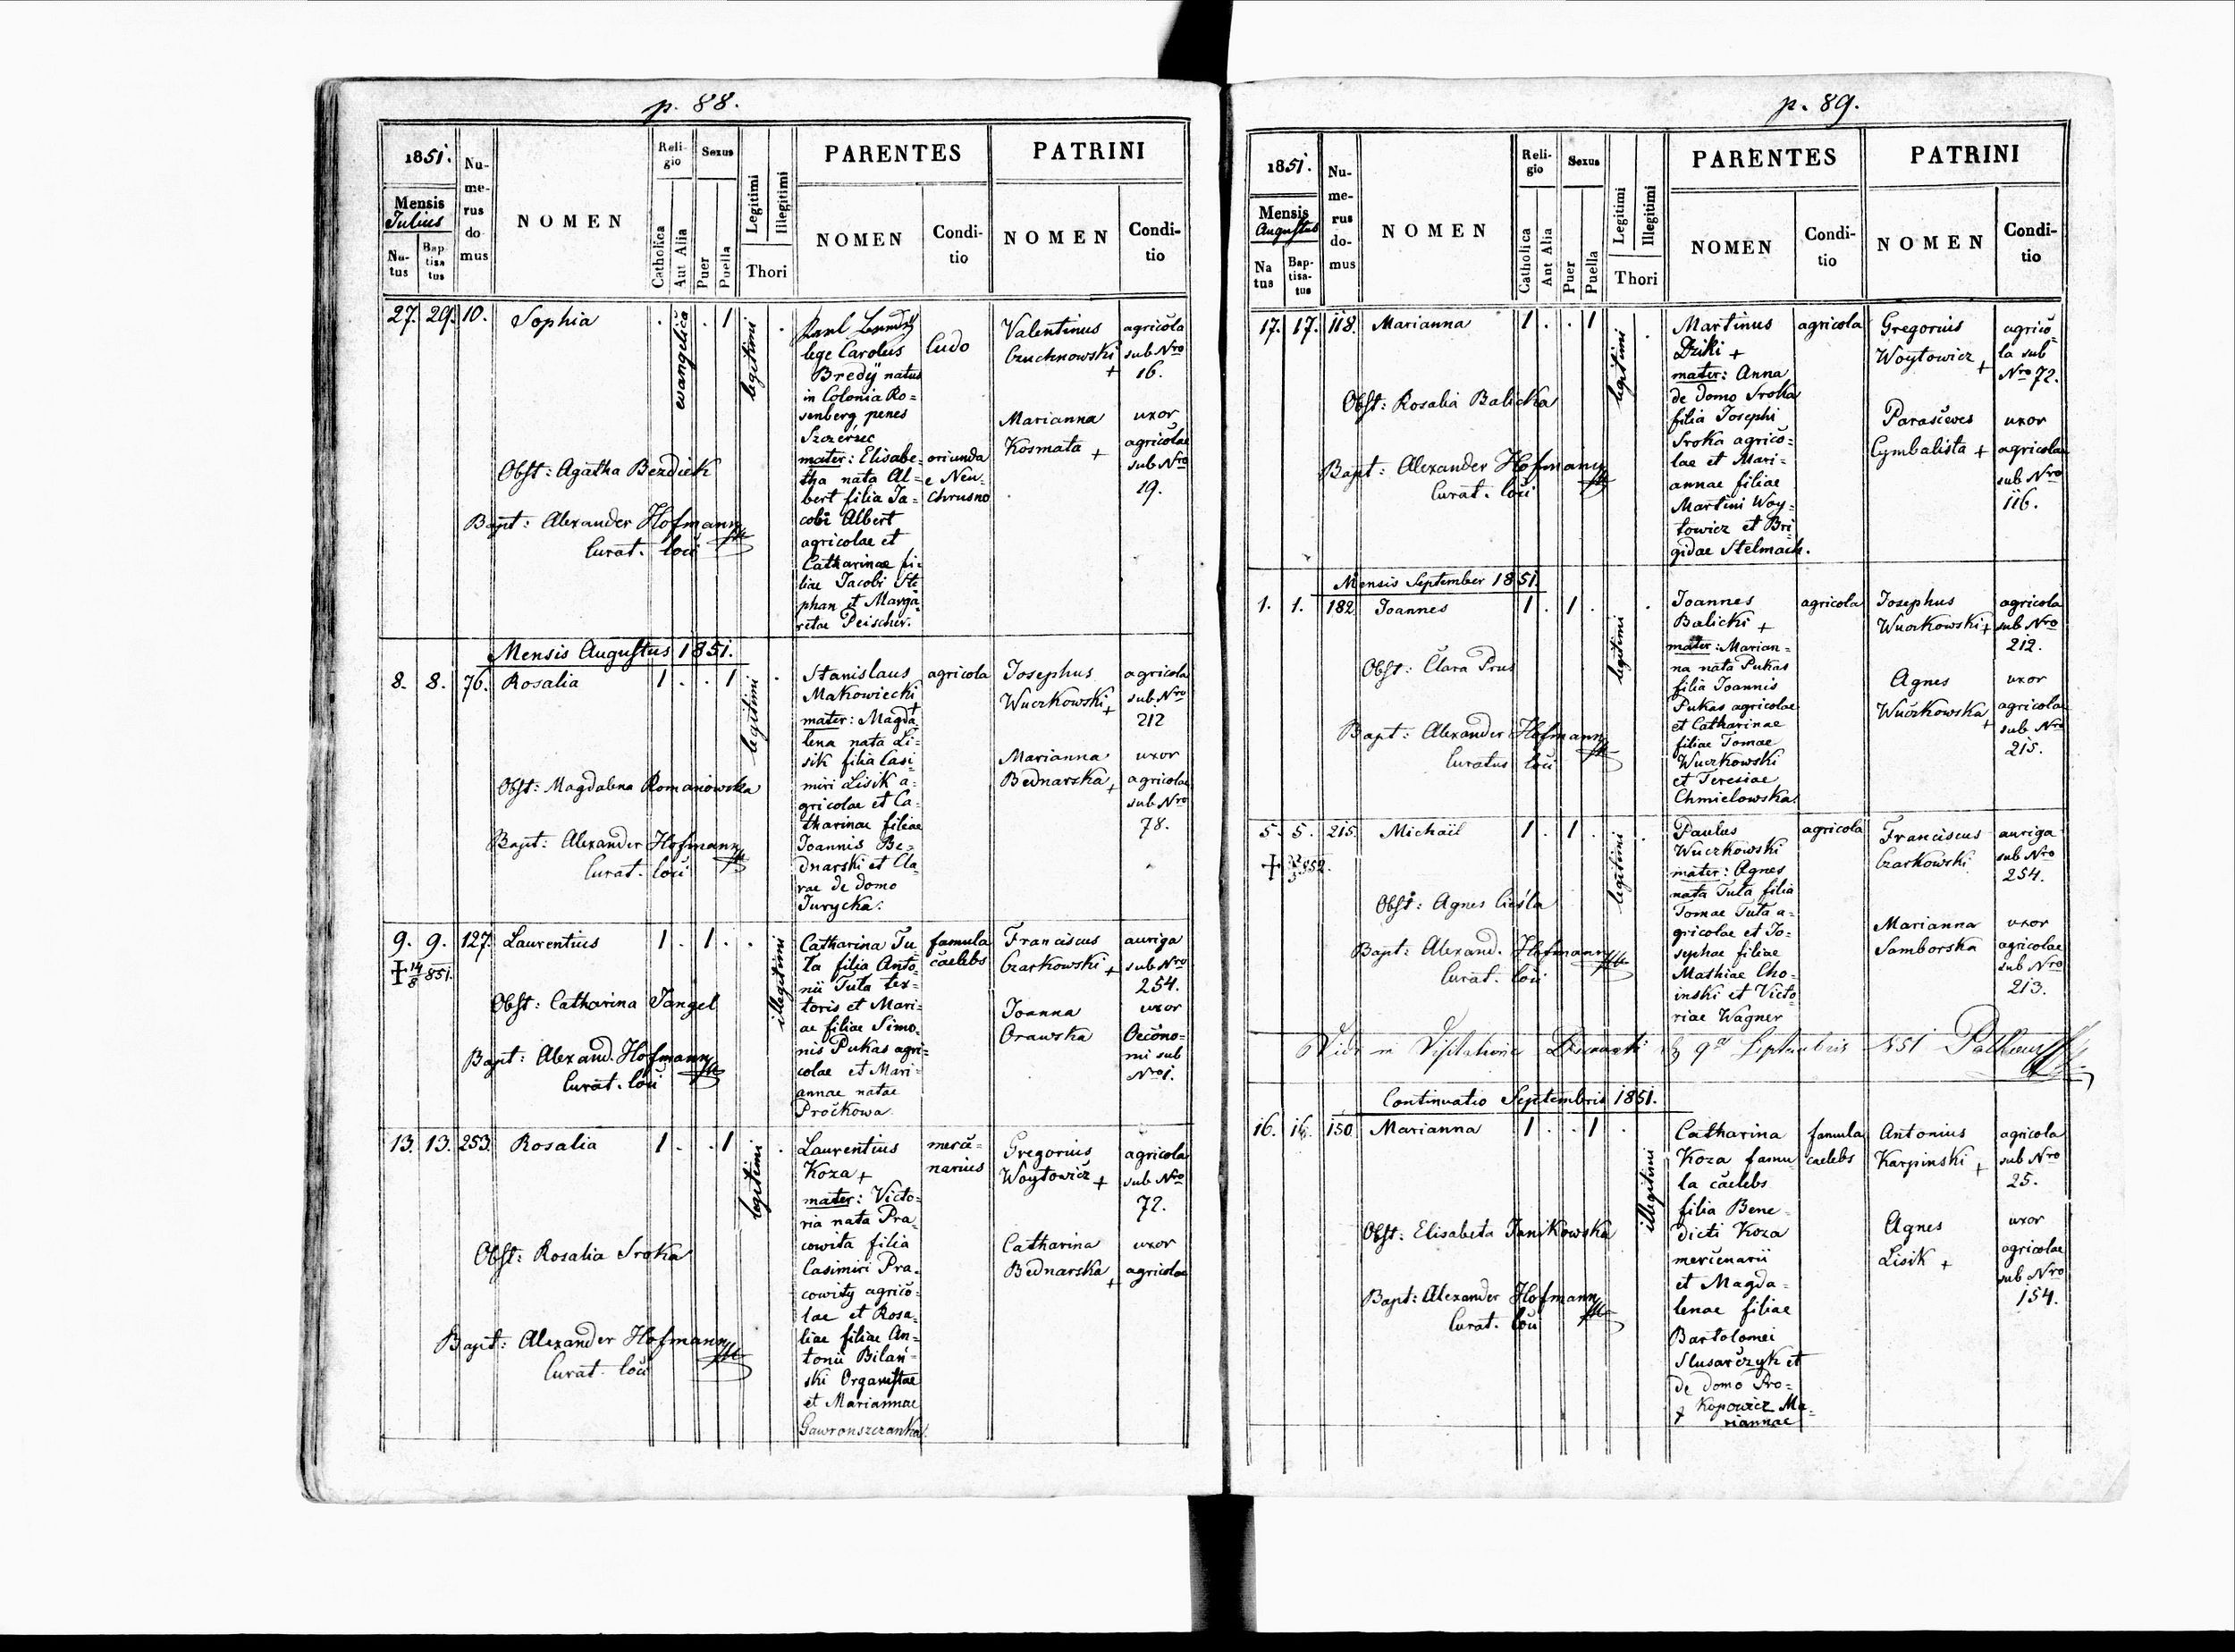 p. 88.
1851.
Mensis
Julius
Na-
tus
Bap-
tisa
tus
Nu-
me-
rus
do-
mus
NOMEN
Reli-
gio
Catholica
Aut Alia
Sexus
Puer
Puella
Legitimi
Illegitimi
Thori
PARENTES
NOMEN
Condi-
tio
PATRINI
NOMEN
Condi-
tio
27. 29. 10. Sophia . evangelica . 1 legitimi .
Obst: Agatha Bezdiek
Bapt: Alexander Hofmann
Curat. loci
Karl
lege Carolus
Bredÿ natus
in Colonia Ro-
senberg penes
Szczerzec
mater: Elisabe-
tha nata Al-
bert filia Ja-
cobi Albert
agricolae et
Catharinae fi-
liae Jacobi Ste
phan et Marga
retae Peischer.
ludo
oriunda
e Neu-
Chrusno
Valentinus
Czuchnowski
+
agricola
sub Nro
16.
Marianna
Kosmata +
uxor
agricolae
sub Nro
19.
Mensis Augustus 1851.
8. 8. 76. Rosalia 1 . . 1 legitimi .
Obst: Magdalena Romanowska
Bapt: Alexander Hofmann
Curat. loci
Stanislaus
Makowiecki +
mater: Magda
lena nata Li-
sik filia Casi
miri Lisik a-
gricolae et Ca-
tharinae filiae
Joannis Be-
dnarski et Cla-
rae de domo
Jurycka.
agricola
Josephus
Wuczkowski +
agricola
sub Nro
212
Marianna
Bednarska +
uxor
agricolae
sub Nro
78.
9. 9. 127. Laurentius 1 . 1 . . illegitimi
+ 14/8 851.
Obst: Catharina Jangel
Bapt: Alexand. Hofmann
Curat. loci
Catharina Tu
ta filia Anto-
nii Tuta tex-
toris et Mari-
ae filiae Simo-
nis Pukas agri-
colae et Mari-
annae natae
Prockowa
famula
caelebs
Franciscus
Czarkowski +
auriga
sub Nro
254.
Joanna
Orawska
uxor
Oecono-
mi sub
Nro 1.
13. 13. 253. Rosalia 1 . . 1 legitimi .
Obst: Rosalia Sroka
Bapt: Alexander Hofmann
Curat. loci
Laurentius
Koza +
mater: Victo-
ria nata Pra-
cowita filia
Casimiri Pra-
cowity agrico-
lae et Rosa-
liae filiae An-
tonii Bilań-
ski Organistae
et Mariannae
Gawronszczanka.
merce-
narius
Gregorius
Woytowicz +
agricola
sub Nro
72.
Catharina
Bednarska +
uxor
agricolae
p. 89.
1851.
Mensis
Augustus
Na
tus
Bap-
tisa-
tus
Nu-
me-
rus
do-
mus
NOMEN
Reli-
gio
Catholica
Ant Alia
Sexus
Puer
Puella
Legitimi
Illegitimi
Thori
PARENTES
NOMEN
Condi-
tio
PATRINI
NOMEN
Condi-
tio
17. 17. 118. Marianna 1 . . 1 legitimi .
Obst: Rosalia Balicka
Bapt: Alexander Hofmann
Curat. loci
Martinus
Dziki +
mater: Anna
de domo Sroka
filia Josephi
Sroka agrico-
lae et Mari-
annae filiae
Martini Woy-
towicz et Bri
gidae Stelmach.
agricola
Gregorius
Woytowicz +
agrico
la sub
Nro 72.
Parascewes
Cymbalista +
uxor
agricolae
sub Nro
116.
Mensis September 1851.
1. 1. 182 Joannes 1 . 1 . legitimi .
Obst: Clara Prus
Bapt: Alexander Hofmann
Curatus loci
Joannes
Balicki +
mater: Marian-
na nata Pukas
filia Joannis
Pukas agricolae
et Catharinae
filiae Tomae
Wuczkowski
et Teresiae
Chmielowska.
agricola
Josephus
Wuczkowski +
agricola
sub Nro
212.
Agnes
Wuczkowska +
uxor
agricolae
sub Nro
215.
5. 5. 215. Michäil 1 . 1 . legitimi .
+ 852.
Obst: Agnes Cieśla
Bapt: Alexand. Hofmann
Curat. loci
Paulus
Wuczkowski
mater: Agnes
nata Tuta filia
Tomae Tuta a-
gricolae et Jo-
sephae filiae
Mathiae Cho-
inski et Victo-
riae Wagner
agricola
Franciscus
Czarkowski
auriga
sub Nro
254.
Marianna
Samborska
uxor
agricolae
sub Nro
213.
Vidi in Visitatione Decanali 9a Septembris 851
Continuatio Septembris 1851.
16. 16. 150 Marianna 1 . . 1 . illegitimi
Obst: Elisabeta Janikowska
Bapt: Alexander Hofmann
Curat. loci
Catharina
Koza famu-
la caelebs
filia Bene-
dicti Koza
mercenarii
et Magda-
lenae filiae
Bartolomei
Slusarczyk et
de domo Pro-
kopowicz Ma-
riannae
famula
caelebs
Antonius
Karpinski +
agricola
sub Nro
25.
Agnes
Lisik +
uxor
agricolae
sub Nro
154.